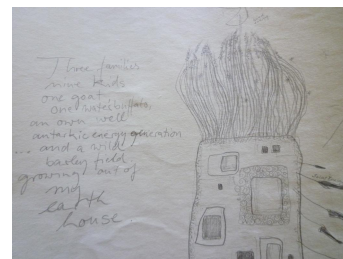 Three families
nine kids
one goat
one waterbuffalo,
an own well
autarkic energy generation
... and a wild
barley field
growing out of
my
earth
house